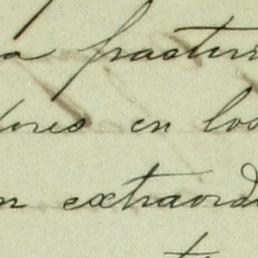 a fractur
dores en los
n extraord